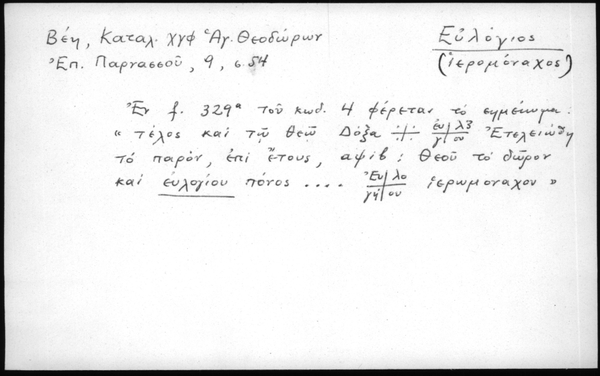 Βέη, Καταλ. χγφ Ἁγ. Θεοδώρων
Εὐλόγιος
Ἐπ. Παρνασσοῦ, 9, σ. 54
(ἱερομόναχος)
Ἐν f. 329ᵃ τοῦ κωδ. 4 φέρεται τὸ σημείωμα:
« τέλος καὶ τῷ θεῷ Δόξα ἐυ λξ γ ου Ἐτελειώθη
τό παρὸν, ἐπὶ ἔτους, αφιβ: Θεοῦ τὸ δῶρον
καὶ εὐλογίου πόνος .... Ἐυ λο γή ου ἱερωμοναχου »